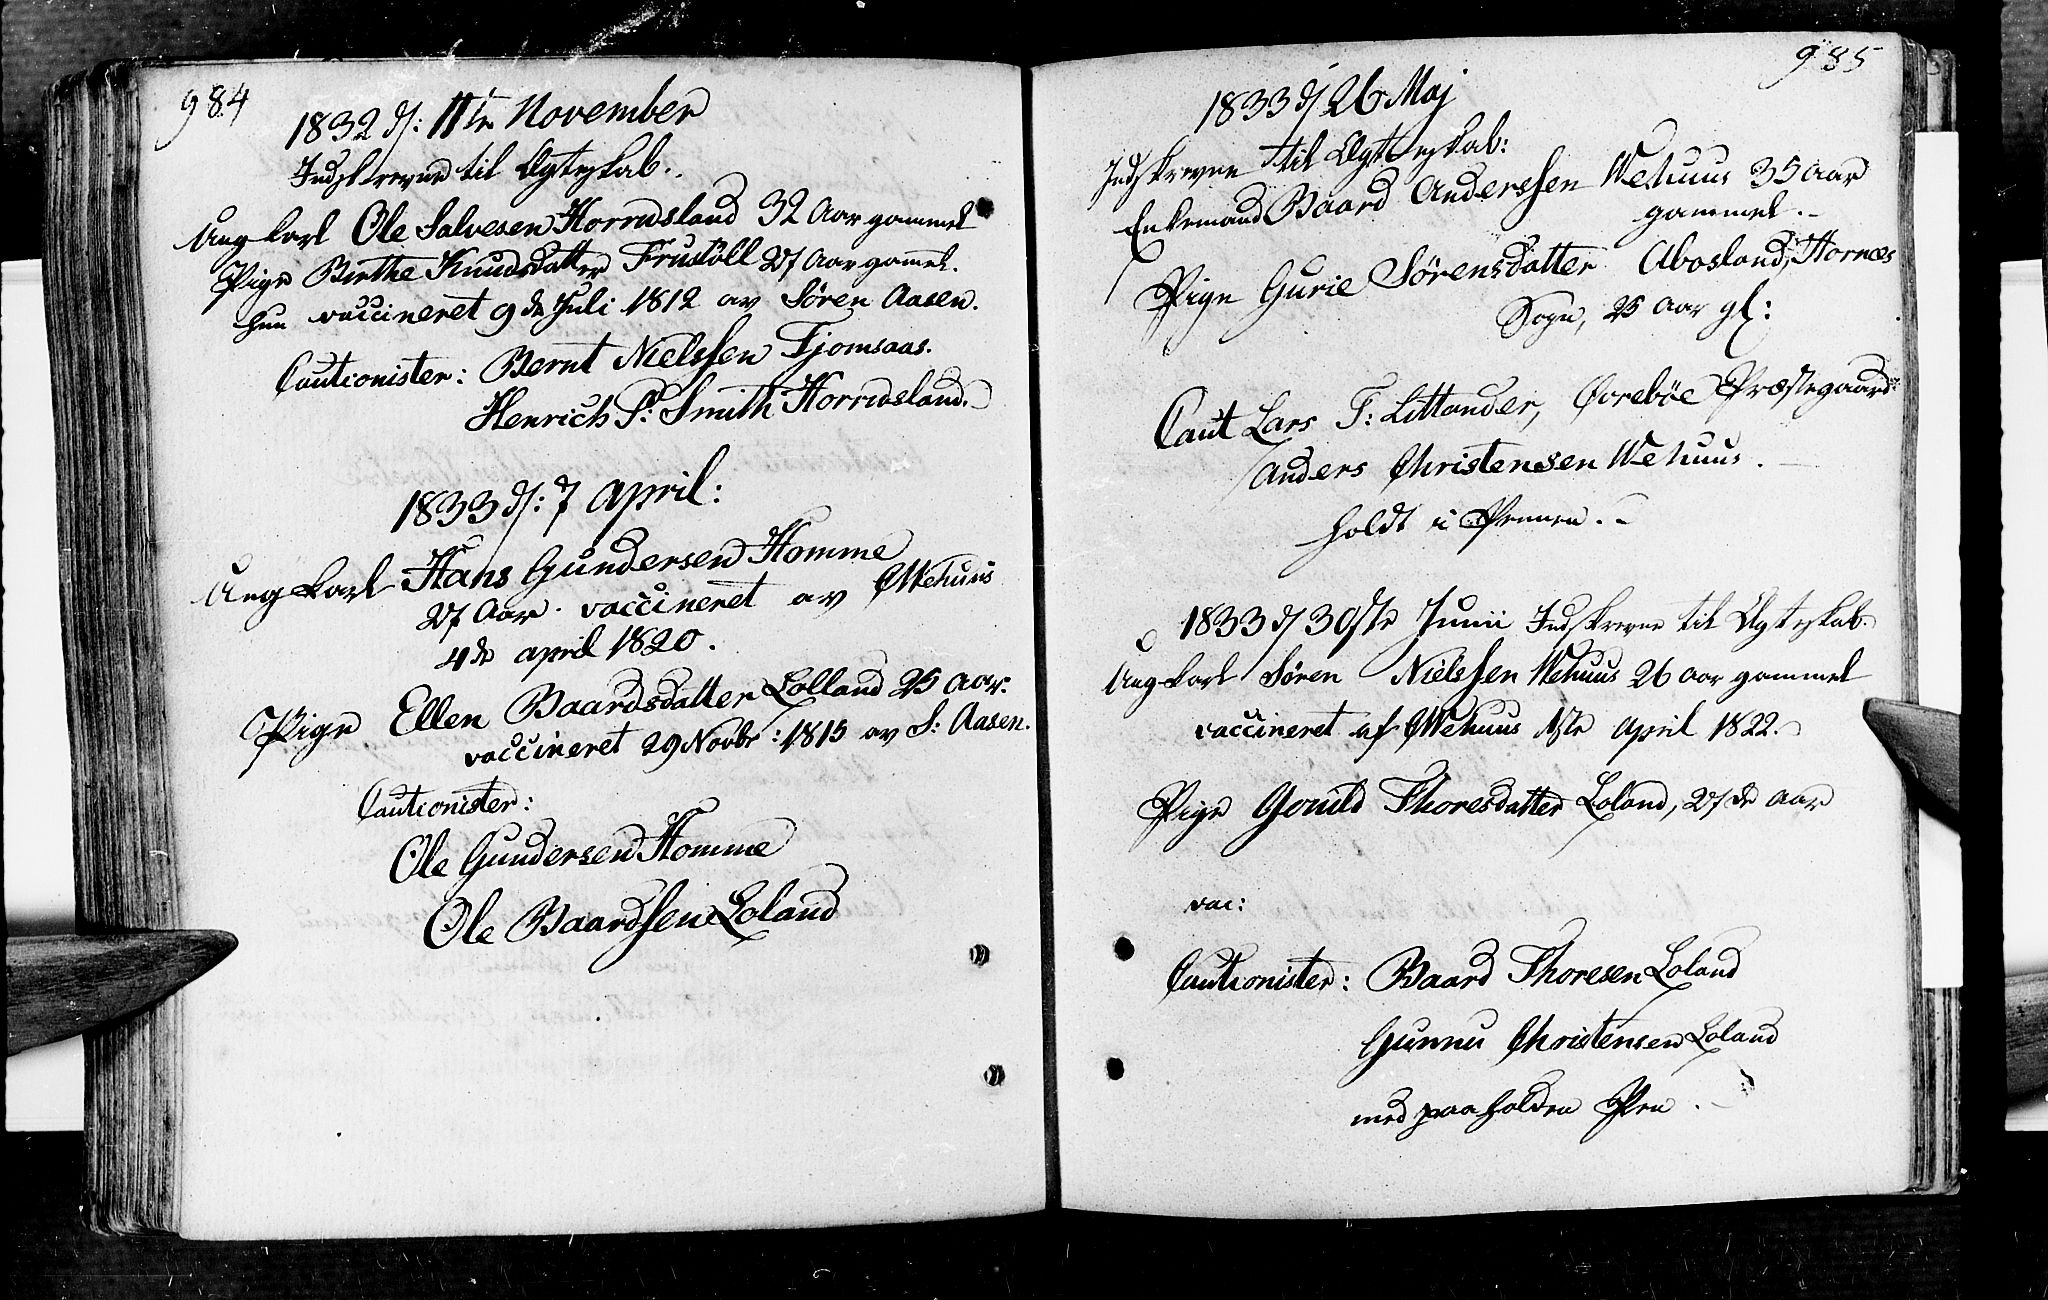 984
1832 d: 11te November
Indskrevne til Ægteskab.
Ung karl Ole Salvesen Horrisland 32 Aar gammel
Pige Birthe Knudsdatter Frustöll 27 Aar gamel.
hun vaccineret 9de Juli 1812 av Sören Aasen.
Cautionister: Bernt Nielssen Fjomsaas.
Henrich P: Smith Horrisland.
1833 d: 7 April:
Ung karl Hans Gundersen Homme
27 Aar. vaccineret av CWehuus
4de april 1820.
Pige Ellen Baardsdatter Lolland 25 Aar.
vaccineret 29 Novbr: 1815 av S: Aasen.
Cautionister:
Ole Gundersen Homme
Ole Baardssen Loland
985
1833 d 26 Maj
Indskrevne til Ægteskab:
Enkemand Baard Anderssen Wehuus 35 Aar
gammel.
Pige Gurie Sörensdatter Abosland, Hornæs
Sogn, 25 Aar gl:
Caut Lars F: Littander, Øvrebøe Præstegaard
Anders Christensen Wehuus.
holdt i Pennen.
1833 d 30ste Junii Indskrevne til Ægteskab.
Ung karl Sören Nielssen Wehuus 26 aar gammel
vaccineret af CWehuus 1ste April 1822.
Pige Gonild Thoresdatter Loland, 27de Aar
vac:
Cautionister: Baard Thoresen Loland
Gunnu Christensen Loland
med paaholden Pen.